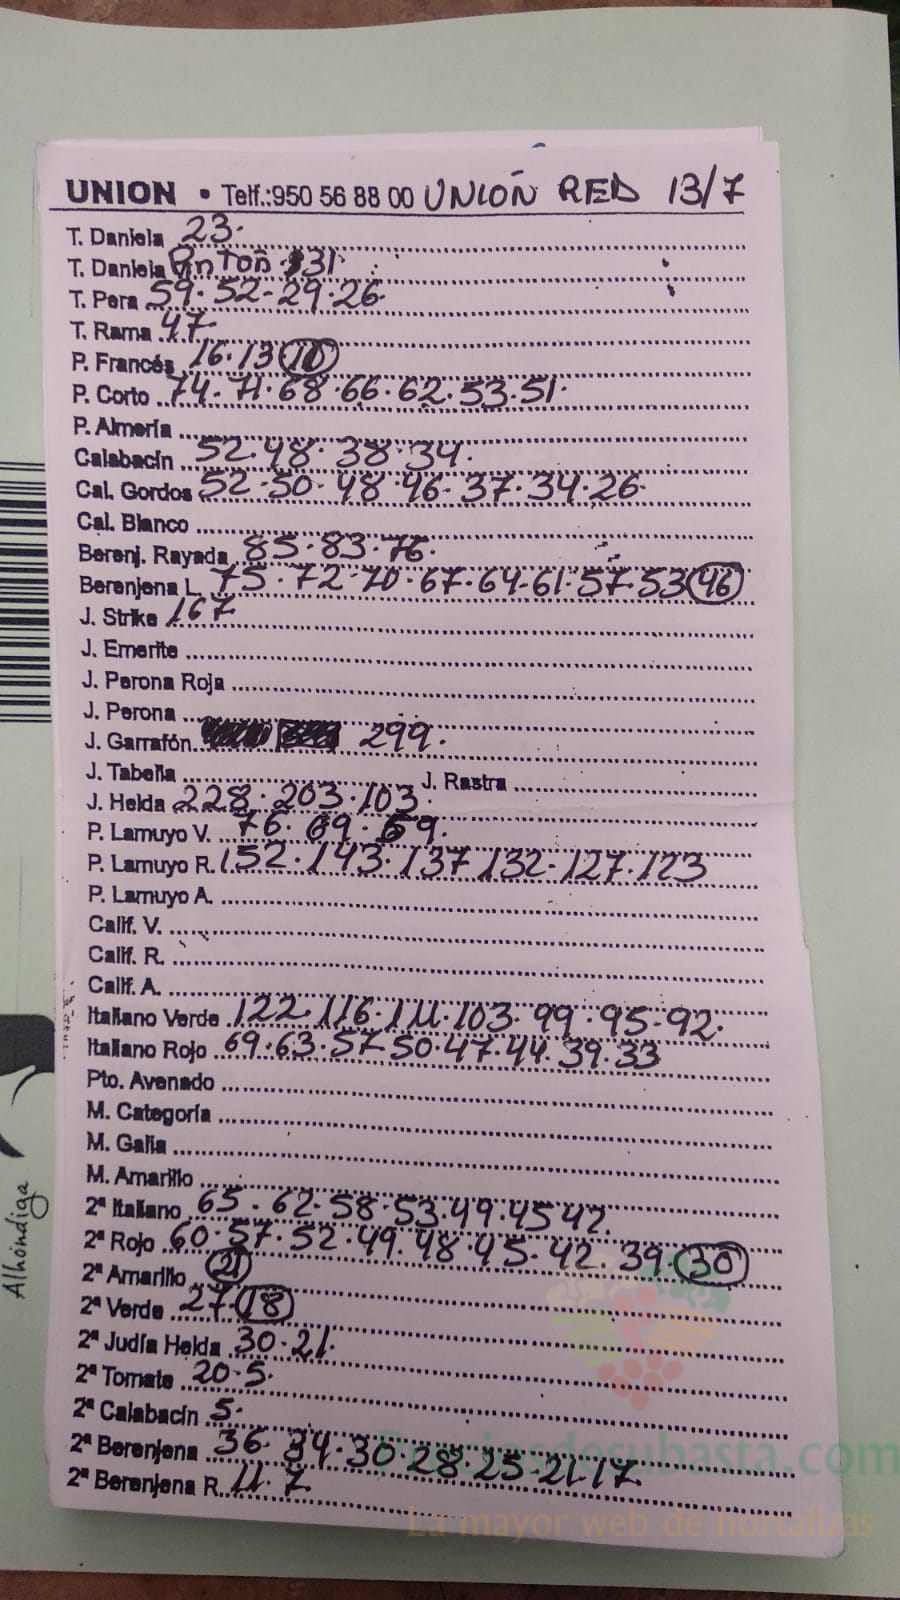 UNION • Telf.:950 56 88 00 UNIÓN RED 13/7
T. Daniela 23.
T. Daniela Pinton 31
T. Pera 59. 52-29.26
T. Rama 47
P. Francés 16.13 10
P. Corto 74. 71.68.66.62.53.51.
P. Almería
Calabacín 52.48.38.34.
Cal. Gordos 52.50.48.46.37.34.26
Cal. Blanco
Berenj. Rayada 85.83.76.
Berenjena L. 75.72-70.67.64.61.57.53 46
J. Strike 167
J. Emerite
J. Perona Roja
J. Perona
J. Garrafón 299.
J. Tabella J. Rastra
J. Helda 228.203.103.
P. Lamuyo V. 76. 69. 59.
P. Lamuyo R. 152.143.137 132-127.123
P. Lamuyo A.
Calif. V.
Calif. R.
Calif. A.
Italiano Verde 122.116.111.103.99.95-92.
Italiano Rojo 69.63.57 50.47.44.39.33
Pto. Avenado
M. Categoría
M. Galia
M. Amarillo
2ª Italiano 65.62.58.53.49.45 42.
2ª Rojo 60.57.52.49.48.45.42.39. 30
2ª Amarillo 21
2ª Verde 27. 18
2ª Judía Helda 30.21.
2ª Tomate 20.5.
2ª Calabacín 5.
2ª Berenjena 36 34.30.28.25.21.17
2ª Berenjena R. 11.7
Alhóndiga
Preciosdesubasta.com
La mayor web de hortalizas